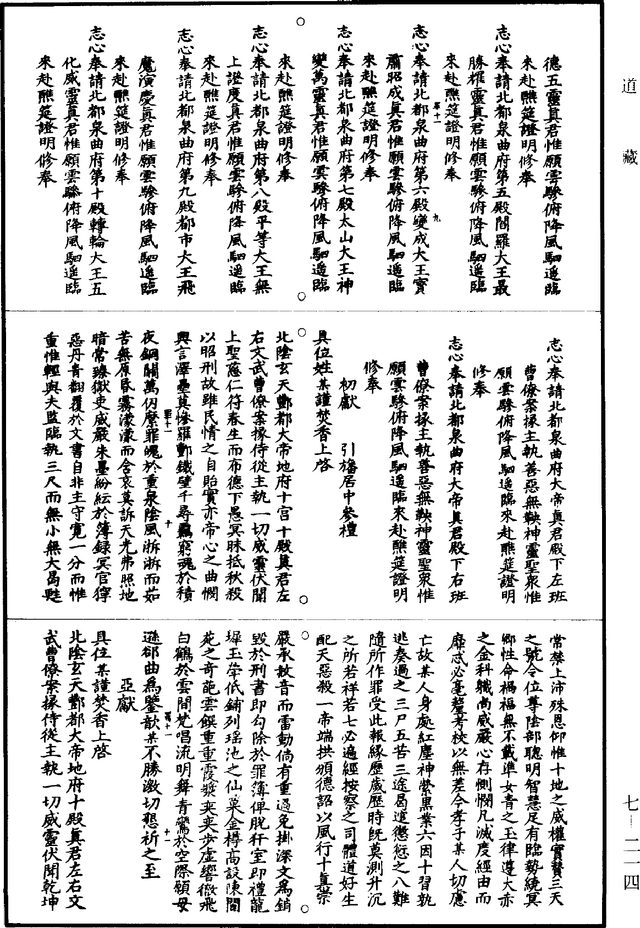 道藏
德五靈真君惟願雲驂俯降風駟遙臨
來赴醮筵證明修奉
志心奉請北都泉曲府第五殿閻羅大王最
勝耀靈真君惟願雲驂俯降風駟遙臨
來赴醮筵證明修奉
志心奉請北都泉曲府第六殿變成大王寶
肅昭成真君惟願雲驂俯降風駟遙臨
來赴醮筵證明修奉
志心奉請北都泉曲府第七殿太山大王神
變萬靈真君惟願雲驂俯降風駟遙臨
來赴醮筵證明修奉
志心奉請北都泉曲府第八殿平等大王無
上證度真君惟願雲驂俯降風駟遙臨
來赴醮筵證明修奉
志心奉請北都泉曲府第九殿都市大王飛
魔演慶真君惟願雲驂俯降風駟遙臨
來赴醮筵證明修奉
志心奉請北都泉曲府第十殿轉輪大王五
化威靈真君惟願雲驂俯降風駟遙臨
來赴醮筵證明修奉
志心奉請北都泉曲府大帝真君殿下左班
曹僚案掾主執善惡無鞅神靈聖衆惟
願雲驂俯降風駟遙臨來赴醮筵證明
修奉
志心奉請北都泉曲府大帝真君殿下右班
曹僚案掾主執善惡無鞅神靈聖衆惟
願雲驂俯降風駟遙臨來赴醮筵證明
修奉
初獻 引旛居中參禮
具位姓某謹焚香上啓
北陰玄天酆都大帝地府十宮十殿真君左
右文武曹僚案掾侍從主執一切威靈伏聞
上聖慈仁符春生而布德下愚冥昧抵秋殺
以昭刑故雖民情之自貽實亦帝心之曲憫
興言澤壘莫修羅酆鐵壁千尋羈窮魂於積
夜銅關萬仞縻罪魄於重泉陰風淅淅而茹
苦無原昏霧濛濛而含哀莫訴天光弗照地
暗常臻獄吏威嚴朱墨紛紜於簿錄冥官獰
惡丹青翻覆於文書自非主守寬一分而惟
重惟輕與夫監臨執三尺而無小無大曷甦
常禁上沛殊恩仰惟十地之威權實贊三天
之號令位尊陰部聰明智慧足有臨勢統冥
鄉性命禍福無不載準女青之玉律遵大赤
之金科職尚威嚴心存惻憫凡滅度經由而
靡忒必毫釐考校以無差今孝子某人切慮
亡故某人身處紅塵神縈黑業六因十習孰
逃奏過之三尸五苦三途曷逭懲愆之八難
隨所作罪受此報緣歷歲歷時旣莫測升沉
之所若祥若七必遍經按察之司體道好生
配天惡殺一帝端拱頒德詔以風行十真崇
嚴承敕音而雷動倘有重過免掛深文爲銷
毀於刑書即勾除於罪簿俾脫犴室即禮龍
墀玉斝低鋪列瑶池之仙菓金樽高設陳閬
苑之奇葩雲饌重重霞漿爽爽步虛響徹飛
白鶴於雲間梵唱流明舞青鸞於空際願毋
遜卻曲爲鑒歆某不勝激切懇祈之至
亞獻
具位某謹焚香上啓
北陰玄天酆都大帝地府十殿真君左右文
武曹僚案掾侍從主執一切威靈伏聞乾坤
七—二一四